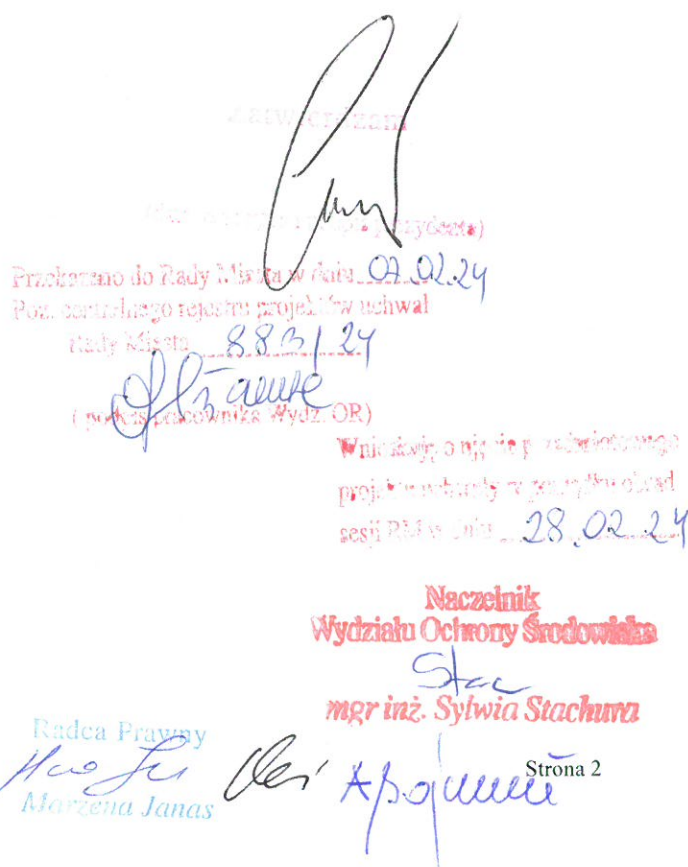 Zatwierdzam
prezydenta)
Przekazano do Rady Miasta w dniu 07.02.24
Poz. centralnego rejestru projektów uchwał
Rady Miasta 883/24
(podpis pracownika Wydz. OR)
Wnioskuję o ujęcie przedmiotowego
projektu uchwały w porządku obrad
sesji RM w dniu 28.02.24
Naczelnik
Wydziału Ochrony Środowiska
mgr inż. Sylwia Stachura
Radca Prawny
Marzena Janas
Strona 2